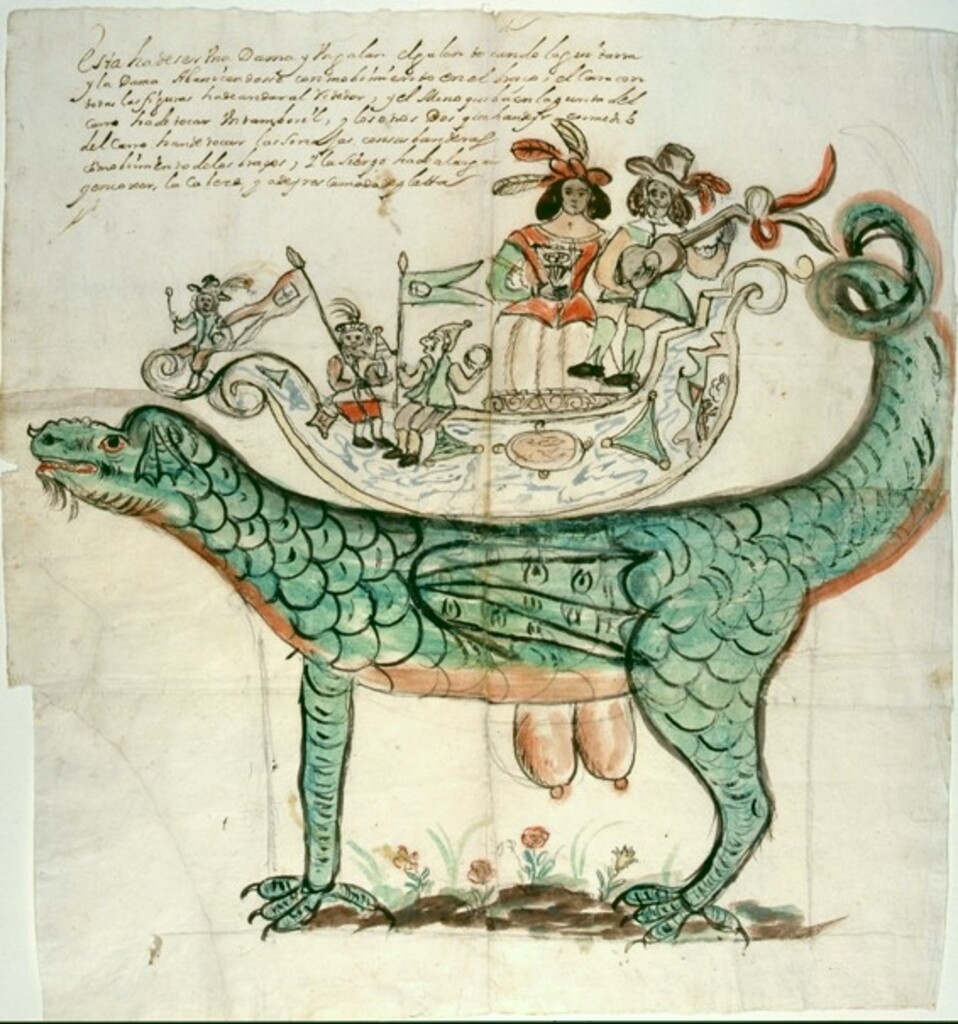 Esta ha de ser Una Dama y Un galan el galan tocando la guitarra
y la Dama Abanicandose con mobimiento en el braço; el Carro con
todas las figuras ha de andar al Rededor, y el Mono que ba en la punta del
Carro ha de tocar Un tamboril, y los otros Dos que han de yr en medio
del Carro han de tocar las sonaJas con sus banderas
mobimiento de los braços; Y la sierpe ha de alargar
y encoxer, la Cabeza, y